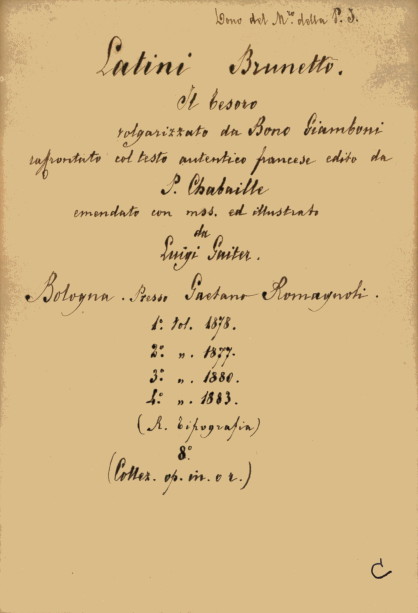 Dono del M.ro della P. I.
Latini Brunetto.
Il Tesoro
volgarizzato da Bono Giamboni
raffrontato col testo autentico francese edito da
P. Chabaille
emendato con mss. ed illustrato
da
Luigi Gaiter.
Bologna. Presso Gaetano Romagnoli.
1º. Vol. 1878.
2º. „. 1877.
3º. „. 1880.
4º. „. 1883.
(R. Tipografia)
8º.
(Collez. op. in. o r.)
C